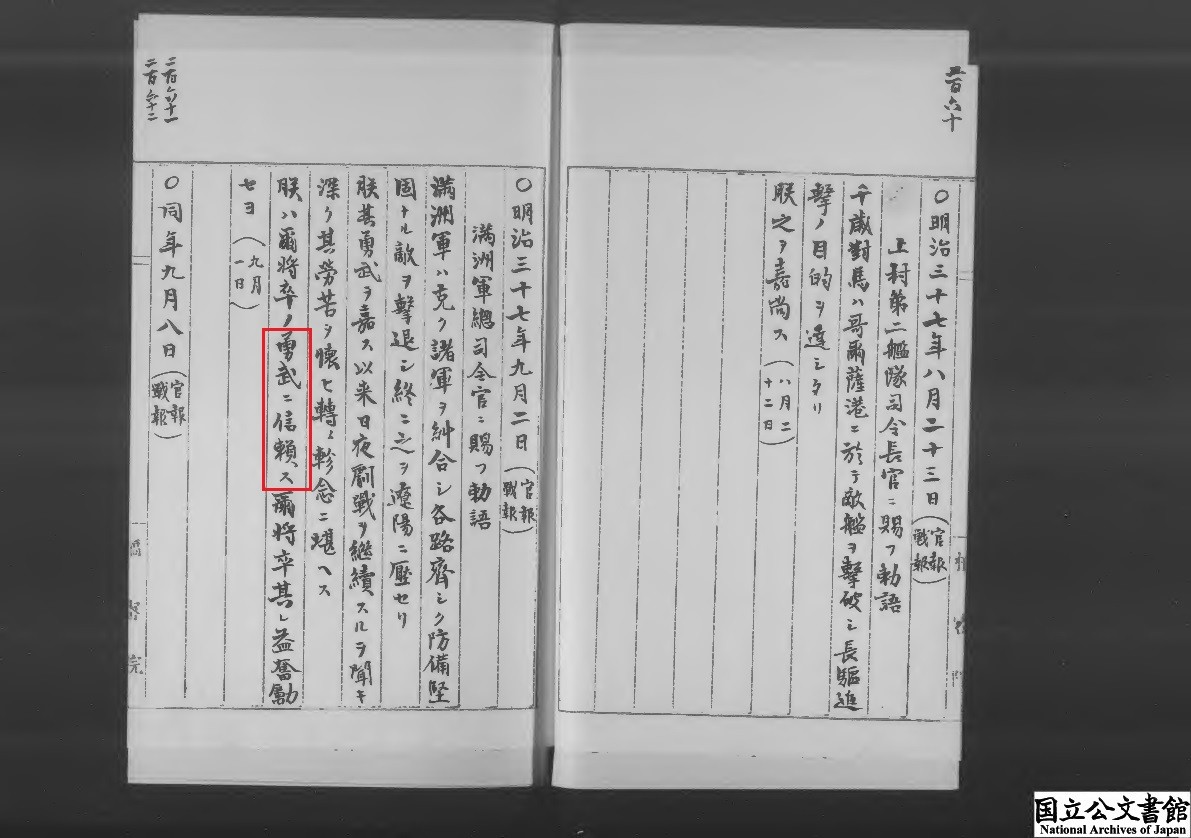 二百六十
〇明治三十七年八月二十三日(官報戰報)
上村第二艦隊司令長官ニ賜フ勅語
千歳對馬ハ哥爾薩港ニ於テ敵艦ヲ擊破シ長驅進
擊ノ目的ヲ達シタリ
朕之ヲ嘉尚ス(八月二十二日)
〇明治三十七年九月二日(官報戰報)
滿洲軍總司令官ニ賜フ勅語
滿洲軍ハ克ク諸軍ヲ糾合シ各路齊シク防備堅
固ナル敵ヲ擊退シ終ニ之ヲ遼陽ニ壓セリ
朕其勇武ヲ嘉ス以来日夜鬪戰ヲ繼續スルヲ聞キ
深ク其勞苦ヲ懷ヒ轉〻軫念ニ堪ヘス
朕ハ爾將卒ノ勇武ニ信賴ス爾將卒其レ益奮勵
セヨ(九月一日)
〇同年九月八日(官報戰報)
二百六十一
二百六十二
国立公文書館
National Archives of Japan